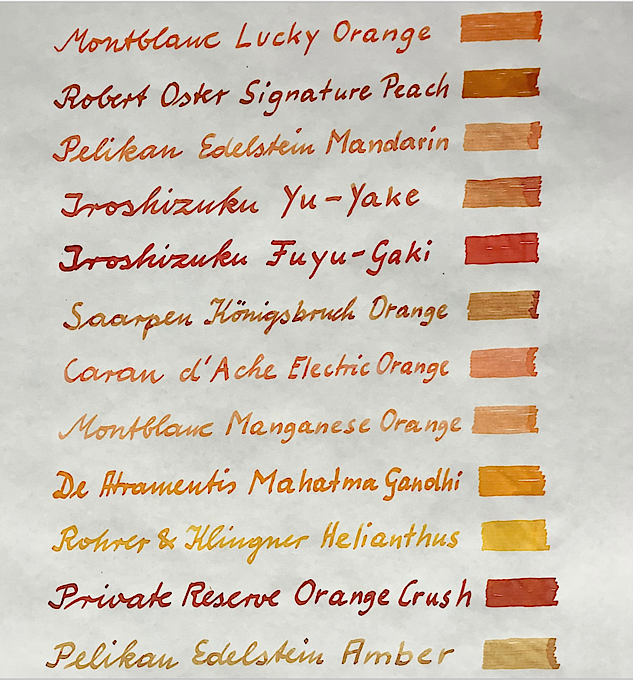 Montblanc Lucky Orange
Robert Oster Signature Peach
Pelikan Edelstein Mandarin
Iroshizuku Yu-Yake
Iroshizuku Fuyu-Gaki
Saarpen Königsbruch Orange
Caran d'Ache Electric Orange
Montblanc Manganese Orange
De Atramentis Mahatma Gandhi
Rohrer & Klingner Helianthus
Private Reserve Orange Crush
Pelikan Edelstein Amber